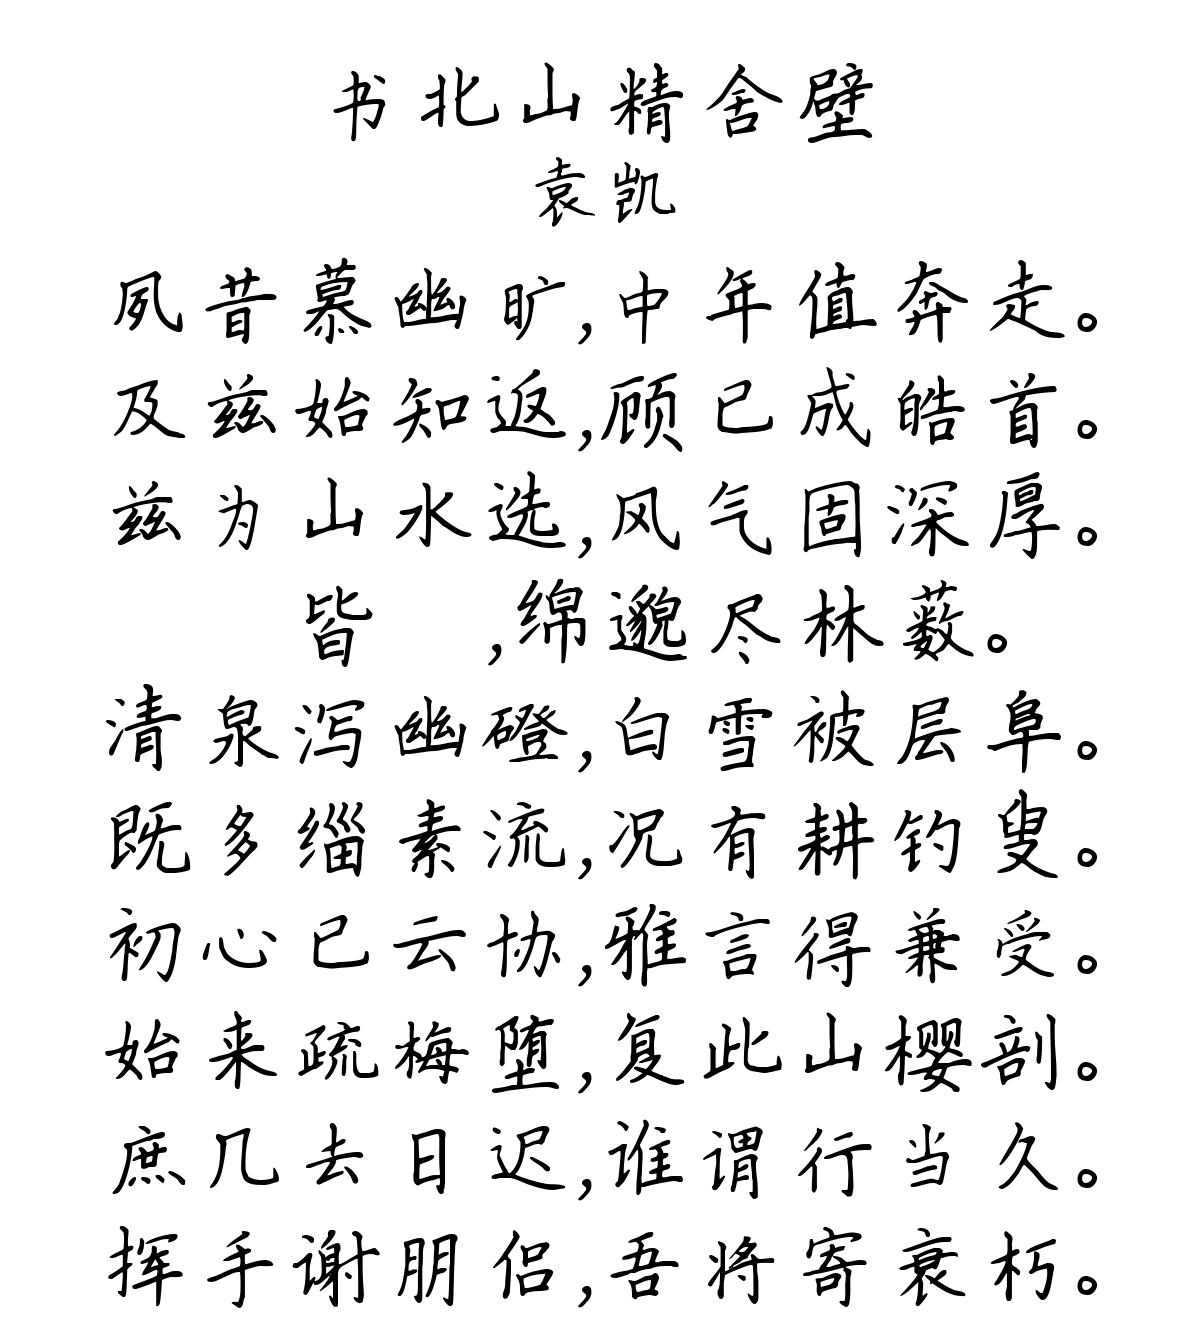 书北山精舍壁
袁凯
夙昔慕幽旷,中年值奔走。
及兹始知返,顾已成皓首。
兹为山水选,风气固深厚。
皆 ,绵邈尽林薮。
清泉泻幽磴,白雪被层阜。
既多缁素流,况有耕钓叟。
初心已云协,雅言得兼受。
始来疏梅堕,复此山樱剖。
庶几去日迟,谁谓行当久。
挥手谢朋侣,吾将寄衰朽。